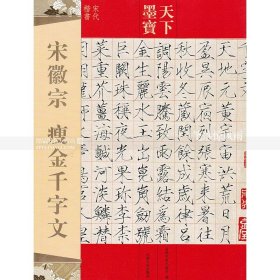 天下
墨寶
宋代
楷書
宋徽宗 瘦金千字文
天地元黃宇宙洪荒日月
盈昃辰宿列張寒來暑往
秋收冬藏閏餘成歲律呂
調陽雲騰致雨露結為霜
金生麗水玉出崑岡劍號
巨闕珠稱夜光果珍李柰